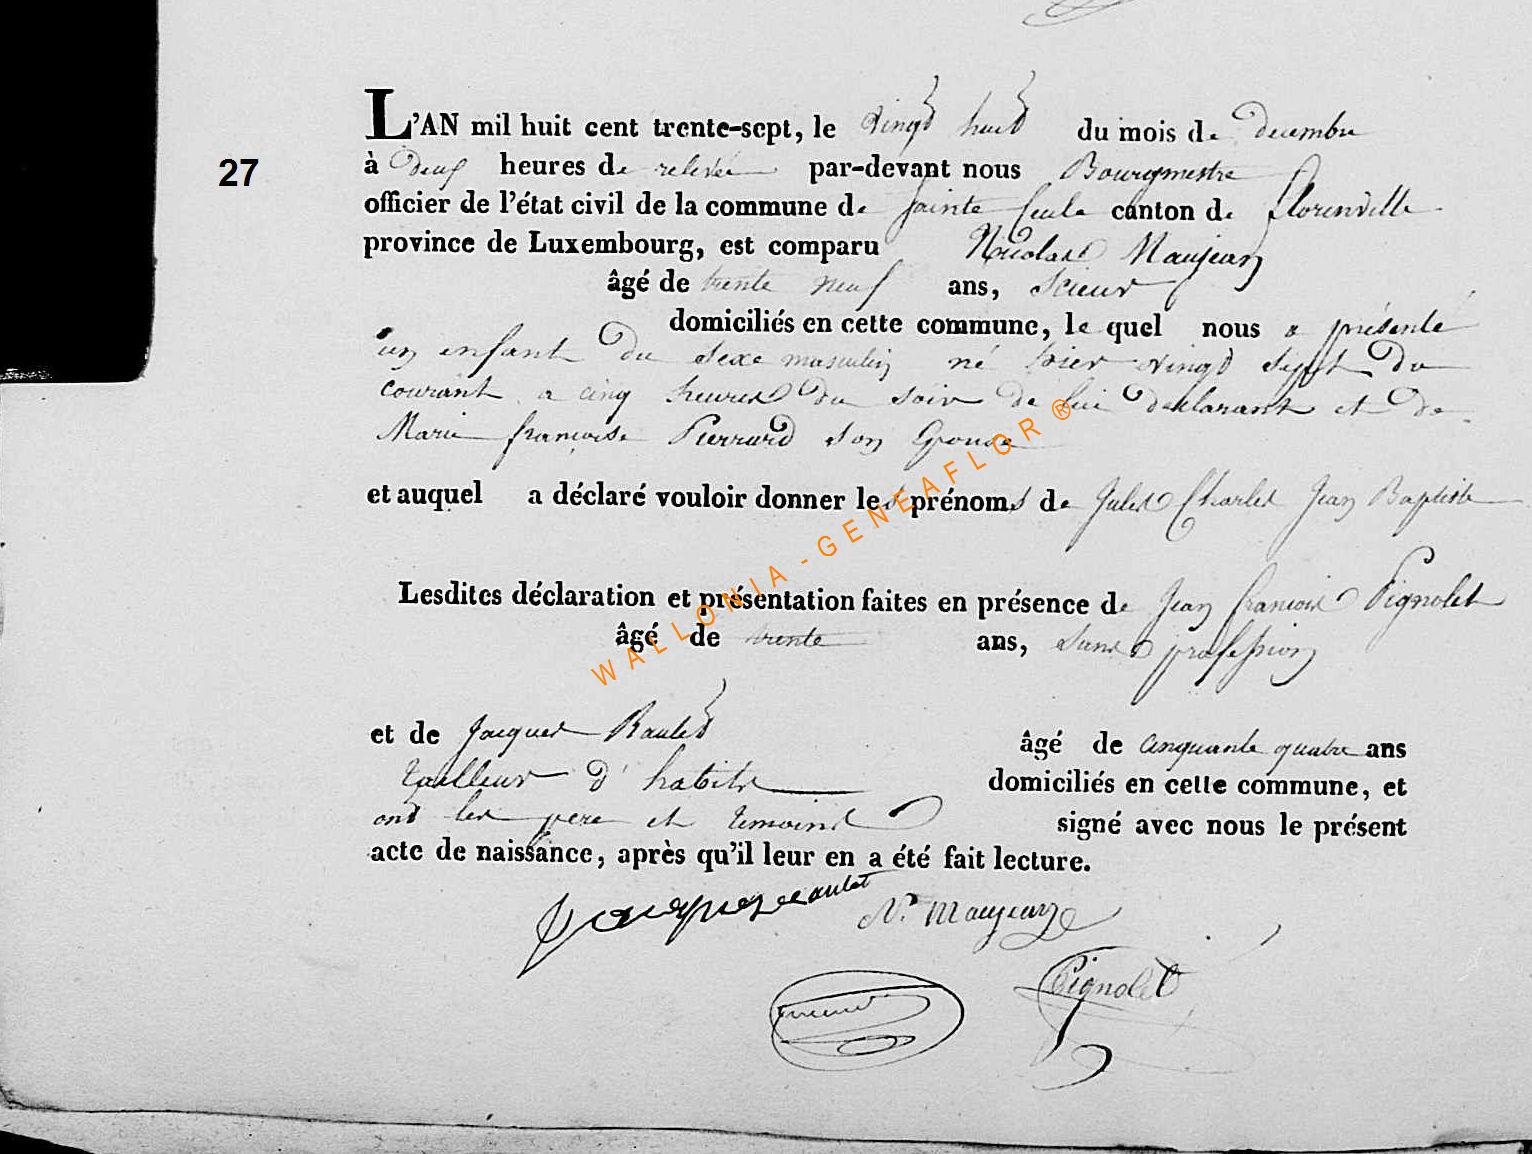 L'AN mil huit cent trente-sept, le vingt huit du mois de decembre
27
à deux heures de relevée par-devant nous Bourgmestre
officier de l'état civil de la commune de Sainte Cecile canton de florenville
province de Luxembourg, est comparu Nicolas Maujean
âgé de trente neuf ans, scieur
domiciliés en cette commune, le quel nous a présenté
un enfant du sexe masculin né hier vingt sept du
courant a cinq heures du soir de lui declarant et de
Marie françoise Pierrard son Epouse
et auquel a déclaré vouloir donner les prénoms de Jules Charles Jean Baptiste
Lesdites déclaration et présentation faites en présence de Jean francois Pignolet
âgé de trente ans, sans profession
et de Jacques Baulet âgé de cinquante quatre ans
tailleur d'habits domiciliés en cette commune, et
ont les pere et temoins signé avec nous le présent
acte de naissance, après qu'il leur en a été fait lecture.
WALLONIA - GENEAFLOR ®
Jacques Baulet N. Maujean
Pignolet